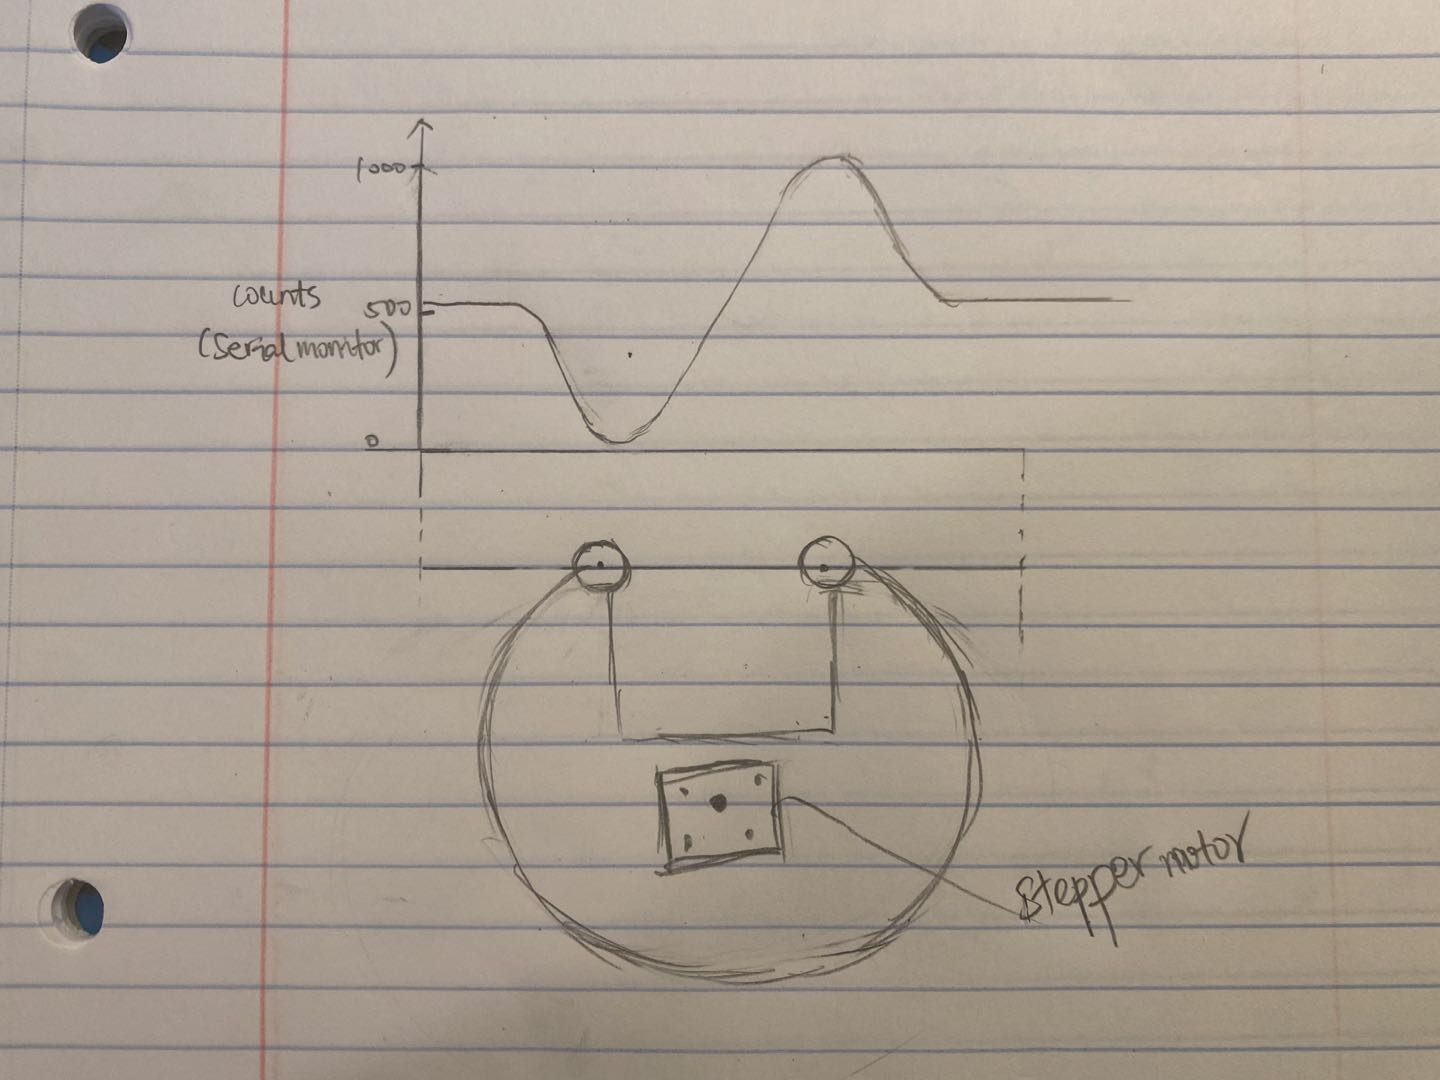 1000
counts
500
(Serial monitor)
0
stepper motor